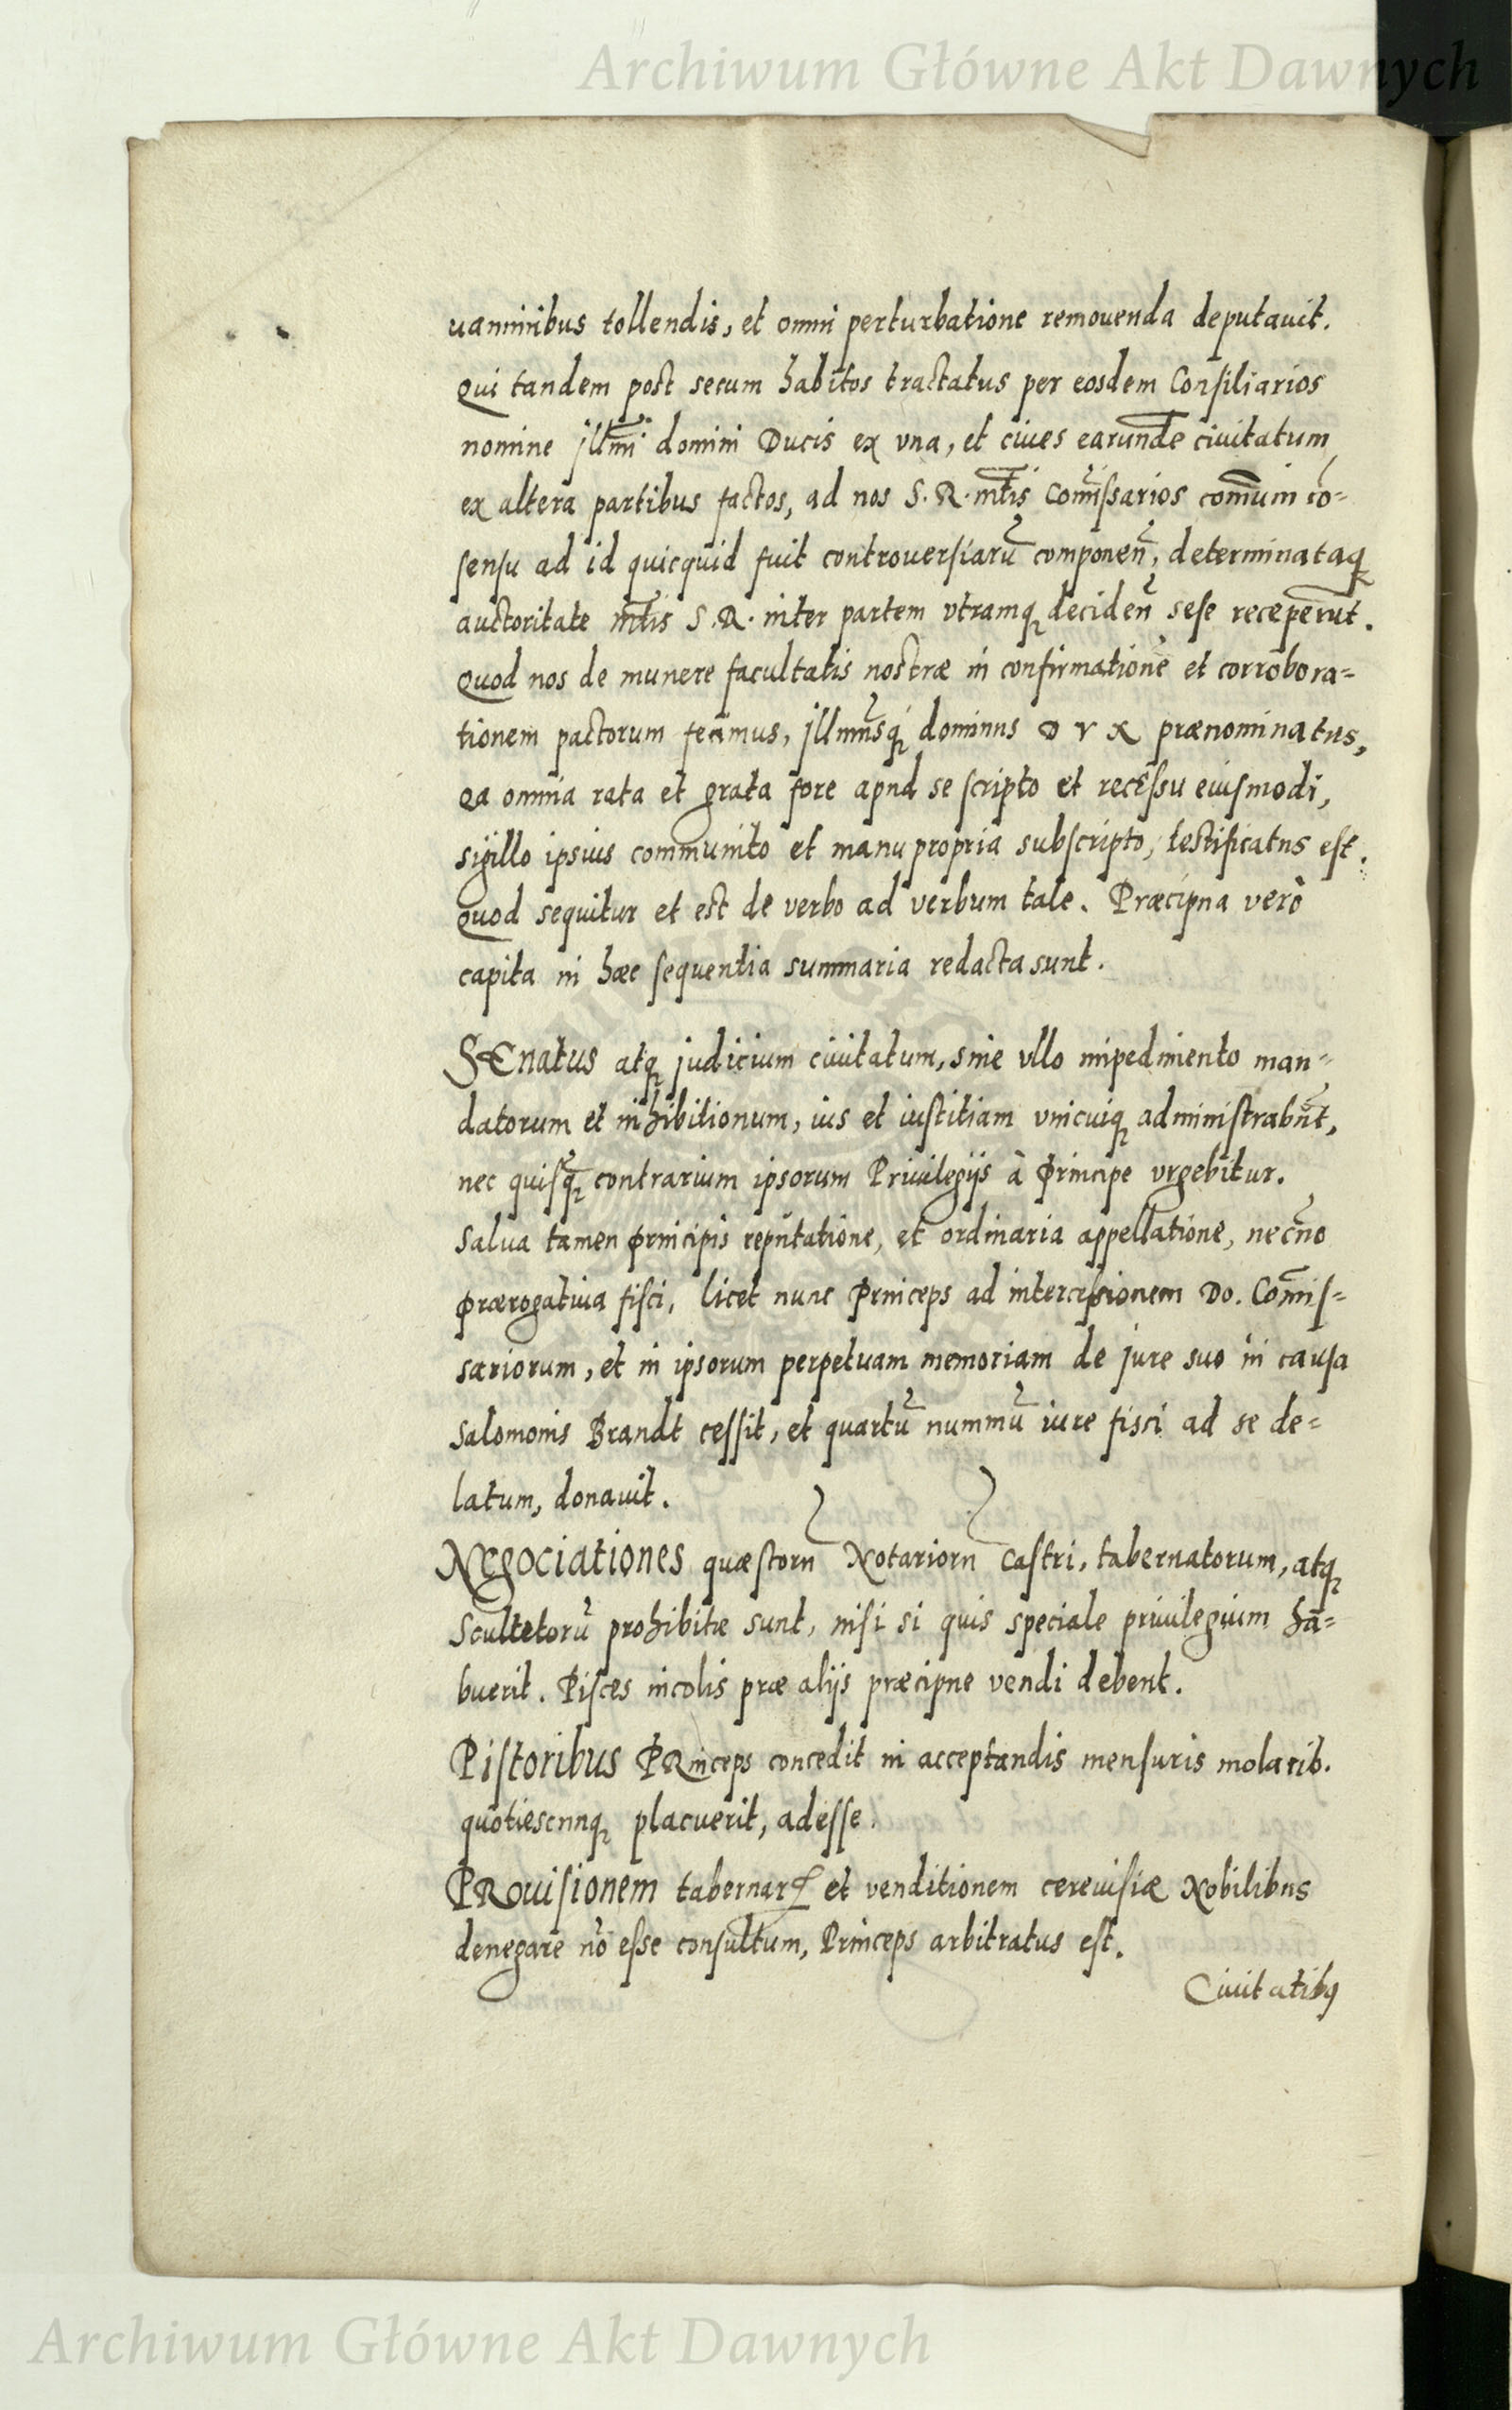 Archiwum Główne Akt Dawnych
uaminibus tollendis, et omni perturbatione remouenda deputauit.
Qui tandem post secum habitos tractatus per eosdem Consiliarios
nomine jllm̃i domini Ducis ex vna, et ciues earundē ciuitatum
ex altera partibus factos, ad nos S. R. mt̃is Com̃issarios com̃uni cō-
sensu ad id quicquid fuit controuersiarū componeñ, determinataq;
auctoritate mt̃is S. R. inter partem vtramq; decideñ sese recepeꝛũt.
Quod nos de munere facultatis nostræ in confirmationē et corrobora-
tionem pactorum fecimus, jllmũsq; dominus DVX prænominatus,
ea omnia rata et grata fore apud se scripto et recessu eiusmodi,
sigillo ipsius communito et manu propria subscripto, testificatus est.
Quod sequitur et est de verbo ad verbum tale. Præcipua verò
capita in hæc sequentia summaria redacta sunt.
SEnatus atq; judicium ciuitatum, sine vllo impedimento man-
datorum et inhibitionum, ius et iustitiam vnicuiq; administrabũt,
nec quisq̃; contrarium ipsorum Priuilegijs à Principe vrgebitur.
Salua tamen principis reputatione, et ordinaria appellatione, necño
prærogatiua fisci, licet nunc Princeps ad intercessionem Do. Com̃is-
sariorum, et in ipsorum perpetuam memoriam de jure suo in causa
Salomonis Brandt cessit, et quartū nummū iure fisci ad se de-
latum, donauit.
Negociationes quæstorū Notariorū Castri, tabernatorum, atq;
Scultetorū prohibitæ sunt, nisi si quis speciale priuilegium ha-
buerit. Pisces incolis præ alijs præcipue vendi debent.
Pistoribus PRinceps concedit in acceptandis mensuris molarib.
quotiescunq; placuerit, adesse.
PROuisionem tabernarꝝ et venditionem cereuisiæ Nobilibus
denegare nõ esse consultum, Princeps arbitratus est.
Ciuitatibꝰ
Archiwum Główne Akt Dawnych